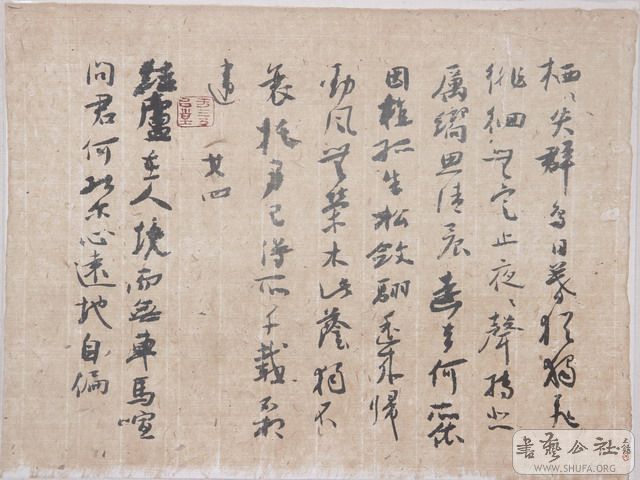 栖〻失群鳥日暮猶獨飛
徘徊無定止夜〻聲轉悲
厲響思清晨遠去何所依
因植孤生松斂翮遥来歸
勁風無榮木此蔭獨不
衰托身已得所千載不相
違 一廿四
結廬在人境而無車馬喧
問君何能尔心遠地自偏
書藝公社
WWW.SHUFA.ORG